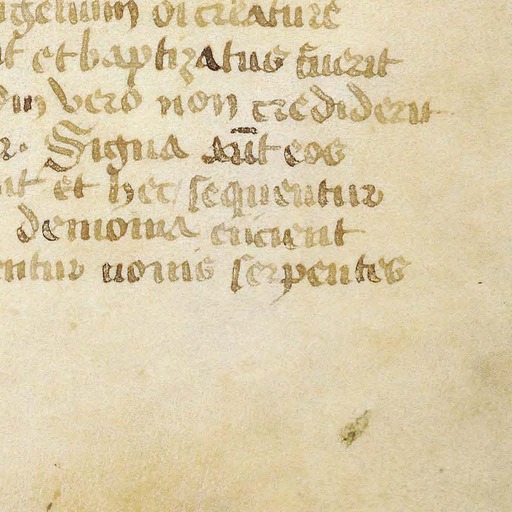 ngelium oi creature
it et baptizatus fuerit
vero non crediderit
r. Signa aūt eos
nt et hec sequentur
demonia eicient
entur nouis serpentes